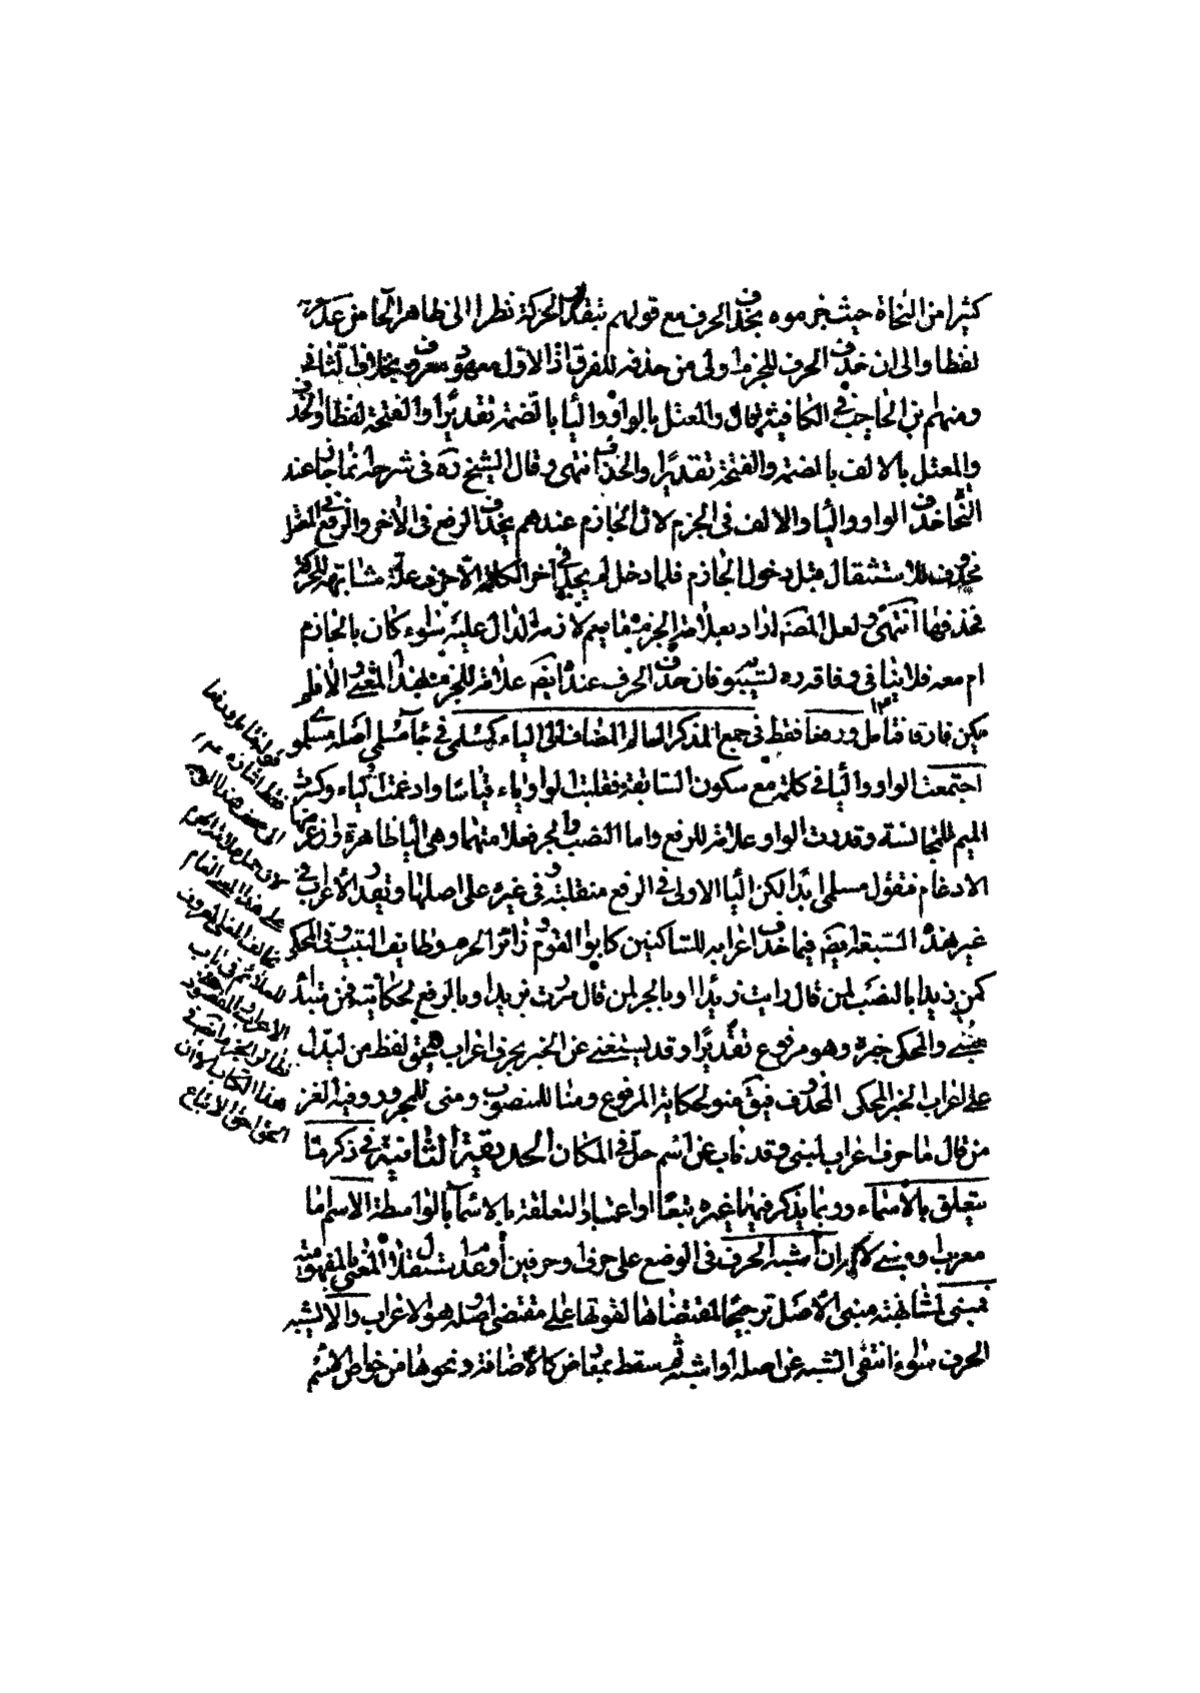 كثيرا من النحاة حيث جزموه بحذف الحرف مع قولهم بتقدير الحركة نظرا الى ظاهر الحا من عدمه
لفظا والى ان حذف الحرف للجزم اولى من حذفه للفرق اذ الاول معهود معروف بخلاف الثانى
ومنهم بن الحاجب فى الكافيه قال والمعتل بالواو والياء بالضمة تقديرًا والفتحة لفظا والحذف
والمعتل بالالف بالضمة والفتحة تقديرًا والحذف انتهى وقال الشيخ ره فى شرحه انما جاز عند
النحاة حذف الواو والياء والالف فى الجزم لان الجازم عندهم يحذف الرفع فى الاخر والرفع فى المعتل
محذوف للاستثقال قبل دخول الجازم فلما دخل لم يجد فى آخر الكلمة الا حرف علة مشابهة للحركة
فحذفها انتهى ولعل المصنف اراد بعلامة الجزم ما يعم لازمه الدال عليه سواء كان بالجازم
ام معه فلا ينافى وفاقه لسيبويه فان حذف الحرف عنده ايضا علامة للجزم بهذا المعنى والا فلم
يكن فارقا فتأمل ورفعا فقط فى جمع المذكر السالم المضاف الى الياء كمسلمى فى جاء مسلمى اصله مسلموى
اجتمعت الواو والياء فى كلمة مع سكون السابقة فقلبت الواو ياء قياسا وادغمت الياء وكسرت
الميم للمجانسة وقدرت الواو علامة للرفع واما النصب والجر فعلامتهما وهى الياء ظاهرة
الادغام فقول مسلمى ابدا لكن الياء الاولى فى الرفع منقلبة وفى غيره على اصلها وتقدر الاعراب فى
غير هذه السبعة ايضا فيما حذف اعرابه للساكنين كابوا القوم زائر الحرم وظايف البيت وفى المحكى
كمن زيدا بالنصب لمن قال رايت زيدا وبالجر لمن قال مررت بزيد وبالرفع لحكايته فمن مبتدأ
مبنى والمحكى خبره وهو مرفوع تقديرًا وقد يستغنى عن الخبر بحرف اعراب يلحق لفظ من ليدل
على اعراب الخبر المحكى المحذوف فيق منو لحكاية المرفوع ومنا للمنصوب ومنى للمجرور وفيه الغز
من قال ما حرف اعراب لمبنى وقد ناب عن اسم حل فى المكان الحديقة الثانية فى ذكر ما
يتعلق بالاسماء وربما يذكر فيها غيره تبعًا او اعتبارا لتعلقه بالاسماء بالواسطة الاسم اما
معرب او مبنى لانه ان اشبه الحرف فى الوضع على حرف او حرفين او عدم استقلال المعنى بالمفهومية
فمبنى لمشابهته مبنى الاصل ترجيحًا لمقتضاها لقوتها على مقتضى اصله هو الاعراب والا يشبه
الحرف سواء انتفى الشبه عن اصله او اشبه ثم سقط بمعارض كالاضافة ونحوها من خواص الاسم
قوله فتأمل ورفعا
فقط اشارة
على هذا المعنى العام
يخالف المعنى المعروف
للعلامة فى باب
الاعراب
هذا الكتاب